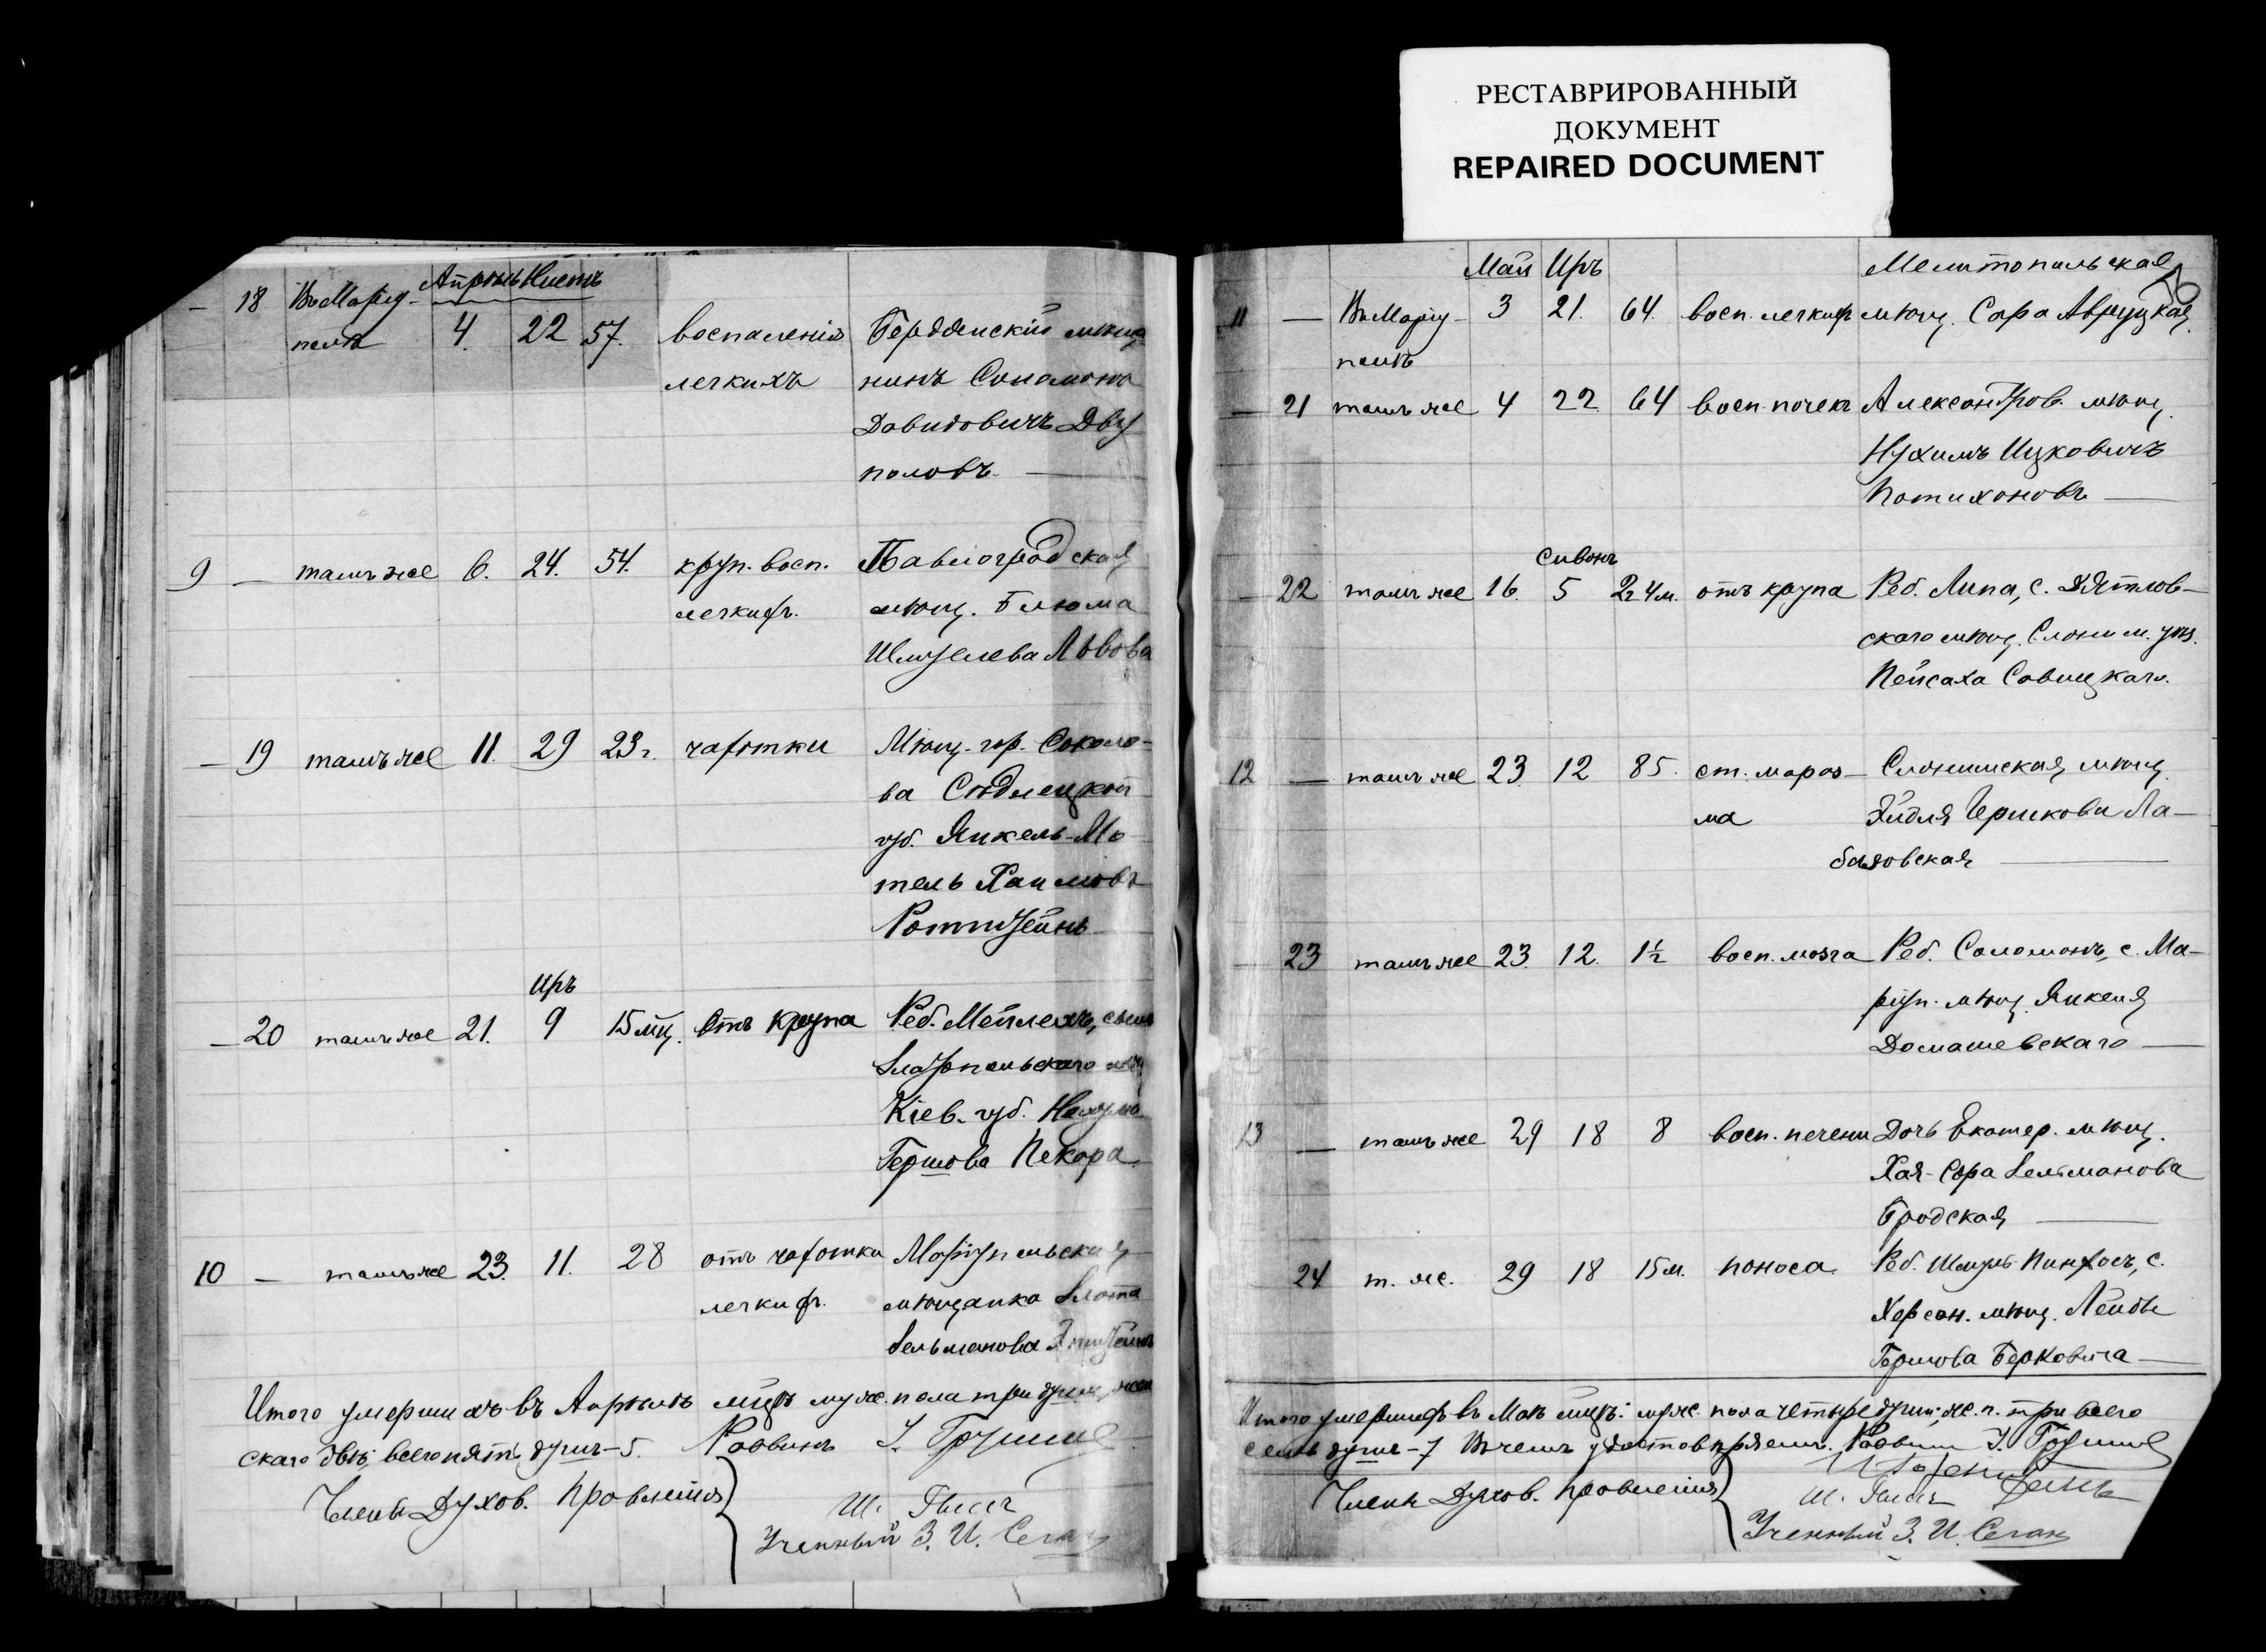 РЕСТАВРИРОВАННЫЙ
ДОКУМЕНТ
REPAIRED DOCUMENT
Апрѣль Нисонъ
— 18 Въ Маріу- 4. 22 57. воспаленія Бердянскій мѣща
полѣ легкихъ нинъ Соломонъ
Давидовичъ Дву
половъ —
9 — тамъ же 6. 24. 54. круп. восп. Павлоградская
легкихъ. мѣщ. Блюма
Шмулева Львова
— 19 тамъ же 11. 29 23 г. чахотки Мѣщ. гор. Соколо-
ва Сѣдлецкой
губ. Янкель-Мо
тель Хаимовъ
Ротштейнъ
Иръ
— 20 тамъ же 21. 9 15 мцъ. отъ крупа Реб. Мейлехъ, сынъ
Златопольскаго
Кіев. губ. Нахума
Гершова Пекара
10 — тамъ же 23. 11. 28 отъ чахотки Маріупольская
легкихъ. мѣщанка Злата
Зельманова
Итого умершихъ въ Апрѣлѣ мцѣ муж. пола три души, жен
скаго двѣ; всего пять душъ - 5. Раввинъ
Члены Духов. Правленія
Ученный З. И. Сеган
Май Иръ Мелитопольская
11 — Въ Маріу- 3 21. 64. восп. легких мѣщ. Сара Авруцкая
полѣ
— 21 тамъ же 4 22 64 восп. почек Александров. мѣщ.
Нухимъ Ицковичъ
Потихоновъ —
Сивонъ
— 22 тамъ же 16. 5 2г 4м. отъ крупа Реб. Липа, с. Дятлов-
скаго мѣщ. Слоним. уѣз.
Пейсаха Савицкаго.
12 — тамъ же 23. 12 85. ст. мараз- Слонимская мѣщ.
ма Эйдля Іершкова Ла-
базовская —
— 23 тамъ же 23. 12. 1½ восп. мозга Реб. Соломонъ, с. Ма-
ріуп. мѣщ. Янкеля
Домашевскаго —
13 — тамъ же 29 18 8 восп. печени Дочь Екатер. мѣщ.
Хая-Сора Зельманова
Бродская —
— 24 т. же. 29 18 15 м. поноса. Реб. Шмуль-Пинхосъ, с.
Херсон. мѣщ. Лейбы
Гершова Берковича —
Итого умершихъ въ Маѣ мцѣ: муж. пола четыре души; ж. п. три всего
семь душъ - 7 Въ чемъ удостовѣряемъ. Раввинъ
Члены Духов. Правленія
Ученный З. И. Сеган